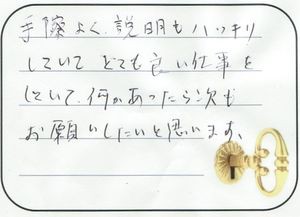 手際よく、説明もハッキリ
していて とても良い仕事を
していて、何かあったら次も
お願いしたいと思います。